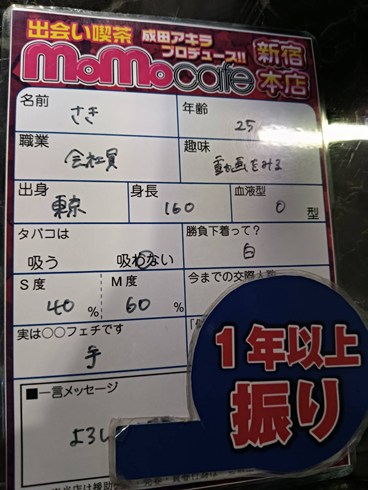 出会い喫茶 成田アキラ
プロデュース!!
MoMocafe 新宿本店
名前 さき
年齢 25
職業 会社員
趣味 動画をみる
出身 東京
身長 160
血液型 O 型
タバコは
吸う 吸わない
勝負下着って?
白
S度 40 %
M度 60 %
今までの交際人数
実は○○フェチです
手
1年以上
振り
■一言メッセージ
よろし